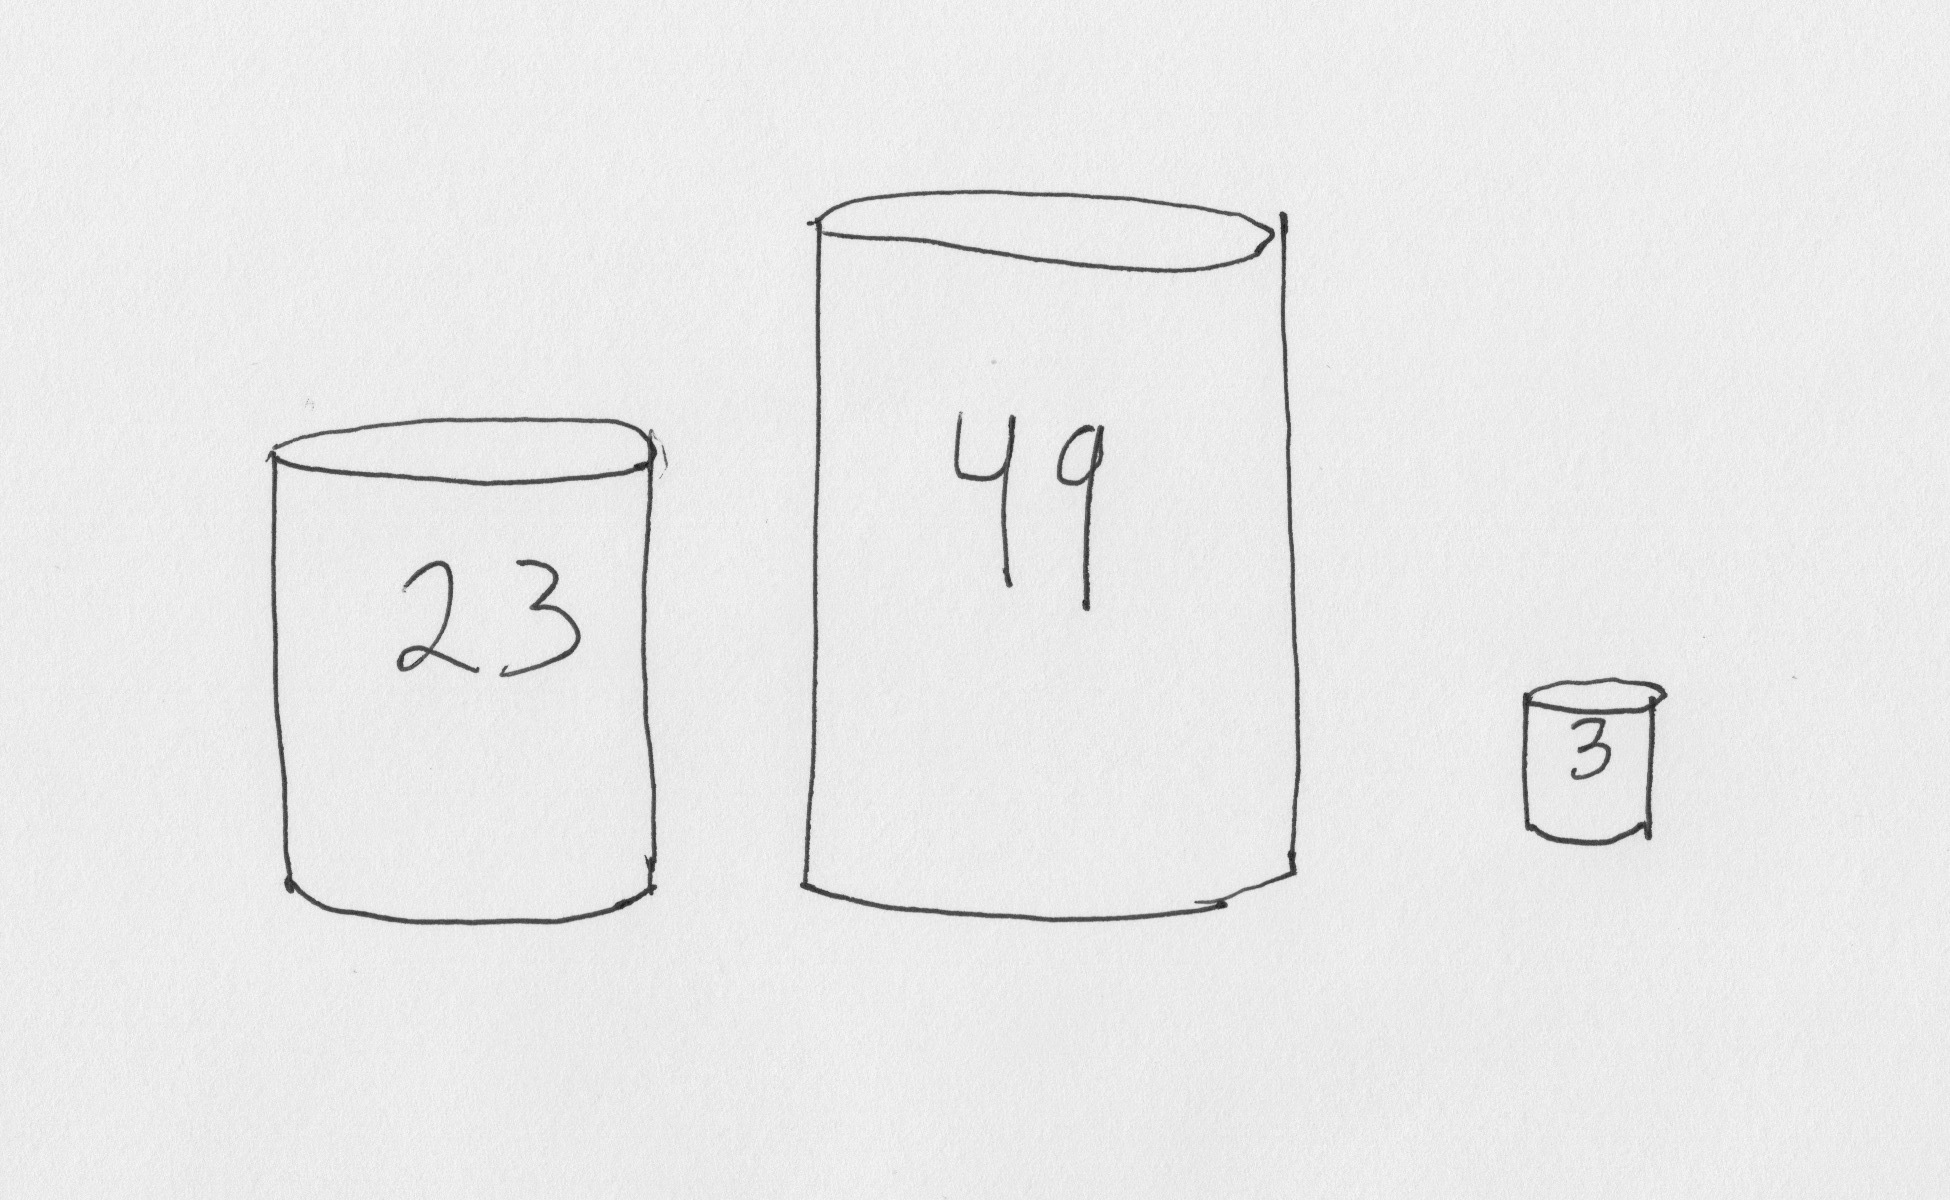 23
49
3